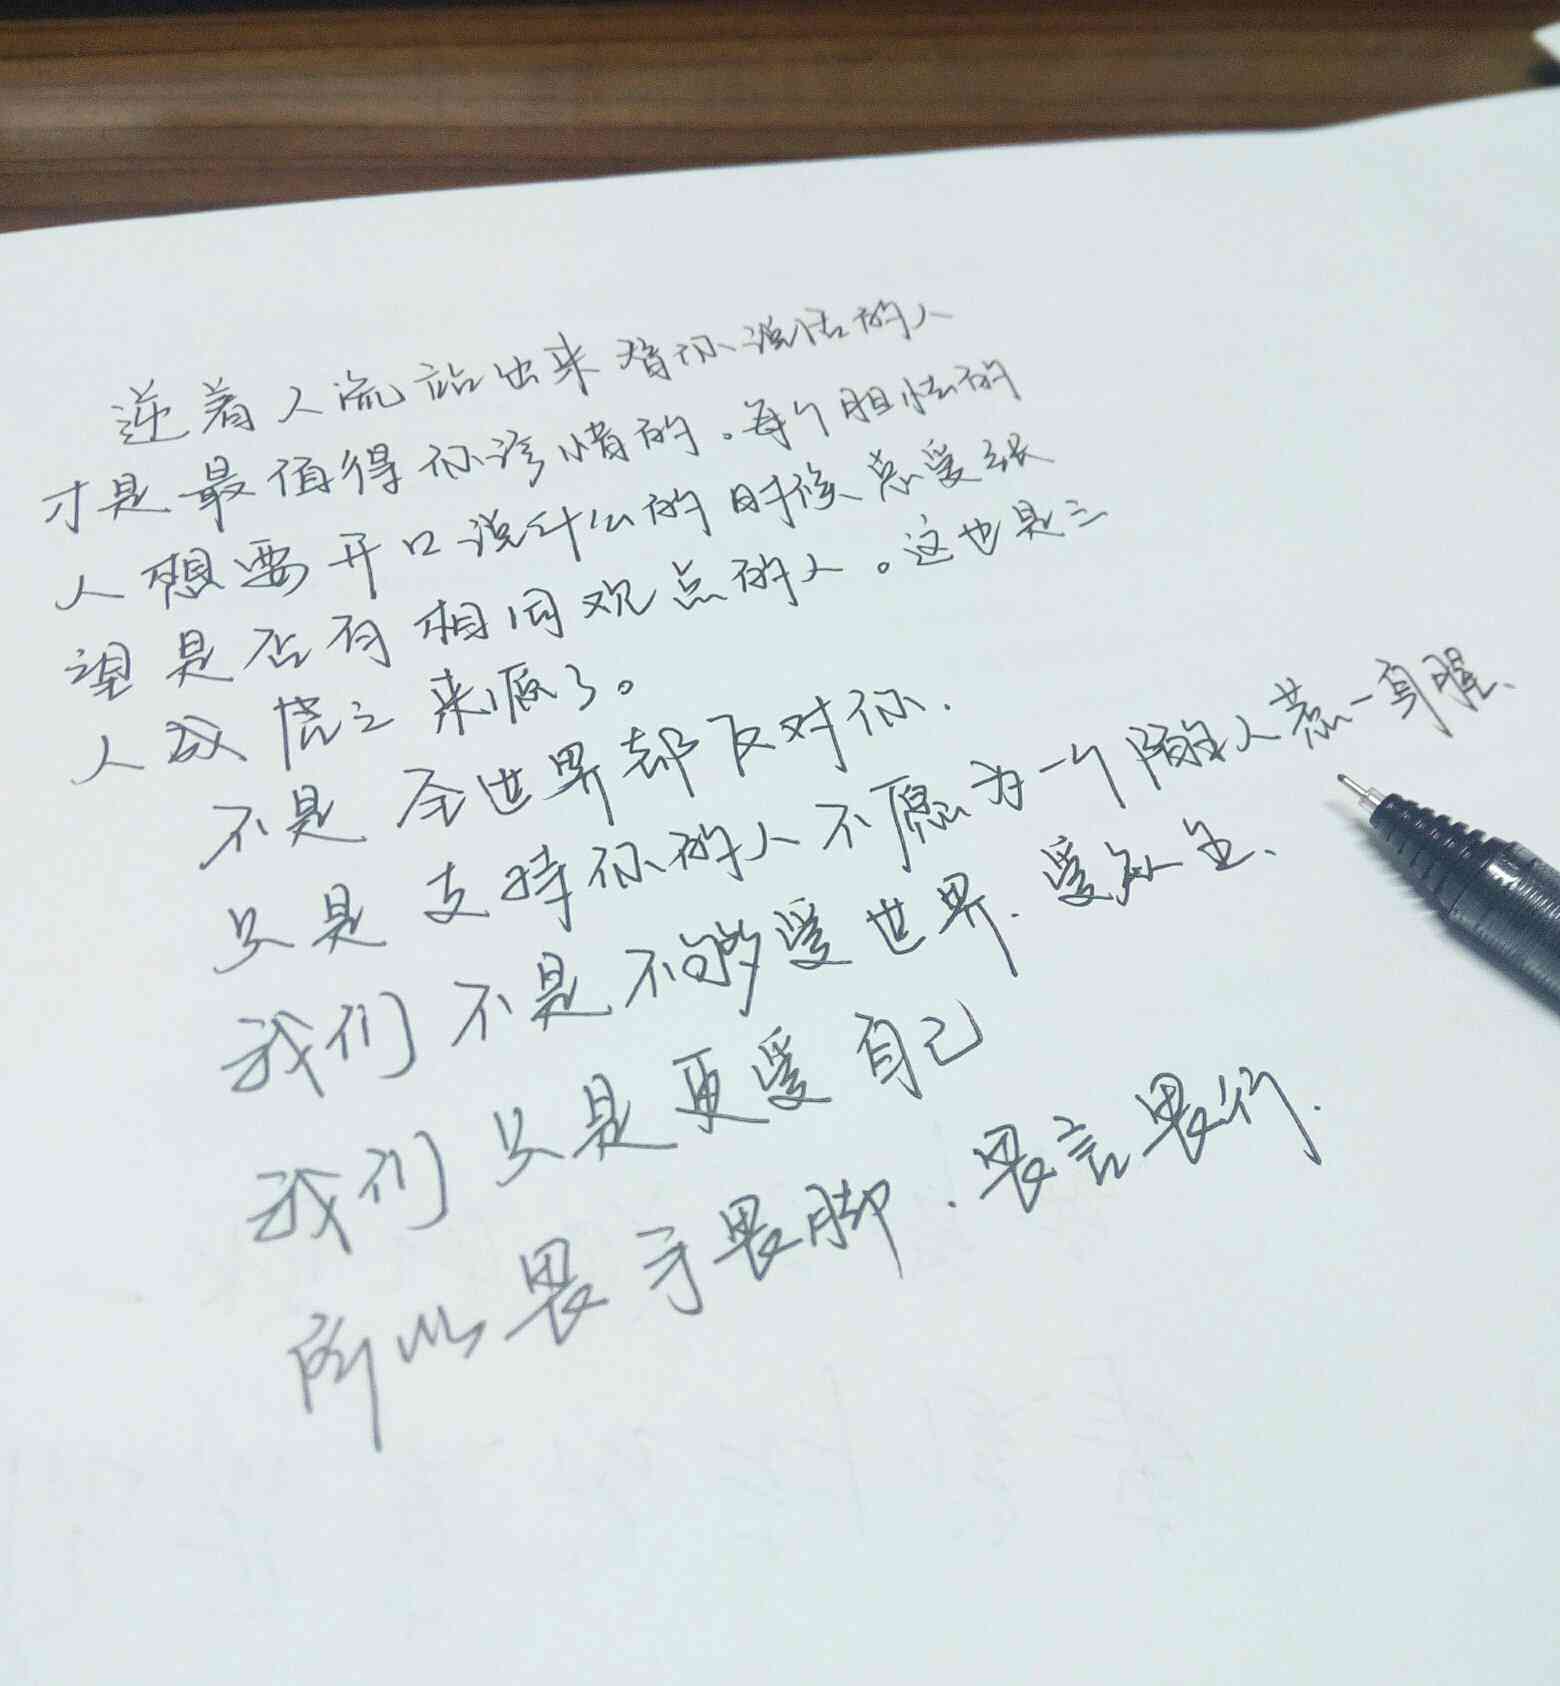 逆着人流站出来替你说话的人
才是最值得你珍惜的。每个胆怯的
人想要开口说什么的时候总要张
望是否有相同观点的人。这也是三
人成虎之来源了。
不是全世界都反对你.
只是支持你的人不愿为一个陌生人惹一身腥、
我们不是不够爱世界.爱众生、
我们只是更爱自己
所以畏手畏脚.畏言畏行.